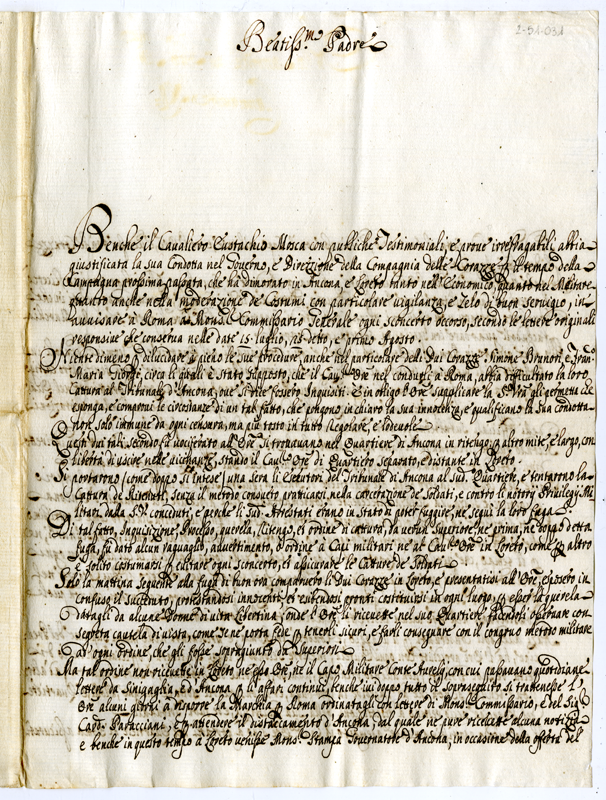 2-51-031
Beatiss.mo Padre
Benche il Cavaliero Eustachio Mosca con publiche Testimoniali, e prove irrefragabili abbia
giustificata la sua Condotta nel Governo, e Direzzione della Compagnia delle Corazze p il tempo della
Campagna prossima passata, che ha dimorato in Ancona, e Loreto tanto nell'Economico, quanto nel Militare
quanto anche nella moderazione de Costumi con particolare vigilanza, e zelo di buon servigio, in
avvisare à Roma à Mons. Commissario Generale ogni sconcerto occorso, secondo le lettere originali
responsive che conserva nelle date 15. luglio, 25. detto, e primo Agosto.
Niente dimeno p delucidare à pieno le sue procedure, anche nel particolare delli Dui Corazze Simone Brunori, e Fran.
Maria Giorgi, circa li quali è stato supposto, che il Cav. Ore nel condurli à Roma, abbia difficultato la loro
Cattura al Tribunale d'Ancona, ove si dice fossero Inquisiti. È in obligo l'Ore supplicare la S.tà Vra gli permetta che
esponga, e comprovi le circostanze di un tal fatto, che pongono in chiaro la sua innocenza, e qualificano la sua condotta
non solo immune da ogni censura, ma più tosto in tutto regolare, e lodevole.
Questi dui tali secondo fù vociferato all'Ore si trovavano nel Quartiere di Ancona in ritengo p altro mite, e largo, con
libertà di uscire nelle vicinanze, stando il Cav. Ore di Quartiero separato, e distante in Loreto.
Si portarono (come doppo si intese) una sera li esecutori del Tribunale di Ancona al Sud. Quartiere, e tentarono la
Cattura de Ritenuti, senza il metodo consueto praticarsi nella carcerazione de Soldati, e contro li notorj Privilegj Mi
litari dalla S.V. conceduti, e perche li Sud. Arrestati erano in stato di poter fuggire, ne seguì la loro fuga.
Di tal fatto, Inquisizione, Processo, querela, Ritengo, et ordine di cattura, da verun Superiore, ne prima, ne doppo detta
fuga, fù dato alcun ragguaglio, avvertimento, ò ordine à Capi militari ne al Cav. Ore in Loreto, come p altro
è solito costumarsi p evitare ogni sconcerto, et assicurare le Catture de Soldati.
Solo la mattina seguente alla fuga di buon ora comparvero li Dui Corazze in Loreto, e presentatisi all'Ore, esposero in
confuso il succeduto, protestandosi innocenti, et esibendosi pronti costituirsi in ogni luogo, p esser la querela
datagli da alcune Donne di vita libertina; onde l'Ore li ricevette nel suo Quartiere, facendoli osservare con
segreta cautela di vista, come se ne porta fede, p tenerli sicuri, e farli consegnare con il congruo metodo militare
ad ogni ordine, che gli fosse sopragiunto da Superiori.
Ma tal ordine non ricevette in Loreto ne esso Ore, ne il Capo Militare Conte Aurelj, con cui passavano quotidiane
lettere da Sinigaglia, ed Ancona p li affari continui, benche ivi doppo tutto il sopraseguito si trattenesse l'
Ore alcuni giorni à disporre la Marchia p Roma ordinatagli con lettere di Mons. Commissario, e del Sig.
Cap. Paracciani, e p attendere il distaccamento d'Ancona, dal quale ne pure ricevette alcuna notizia
e benche in questo tempo à Loreto venisse Mons. Stampa Governatore d'Ancona, in occasione della offerta del